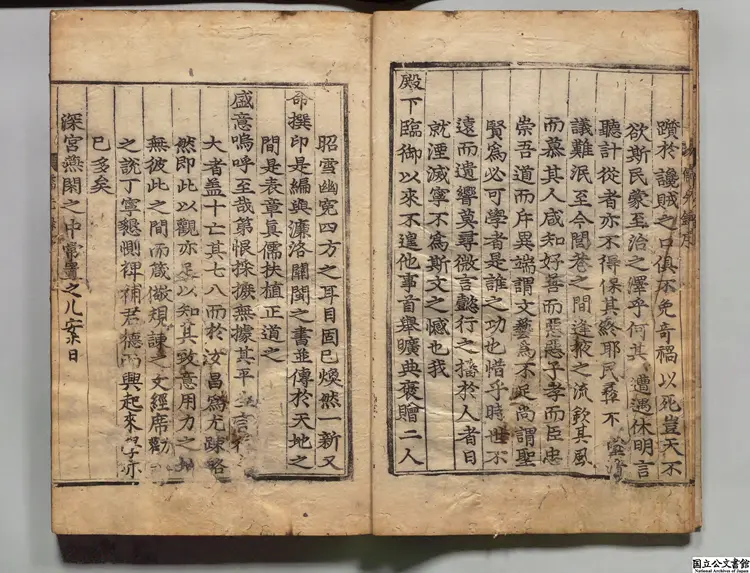 躓於讒賊之口俱不免奇禍以死豈天不
欲斯民蒙至治之澤乎何其遭遇休明言
聽計從者亦不得保其終耶民彝不
議難泯至今閭巷之間逢掖之流欽其風
而慕其人咸知好善而惡惡子孝而臣忠
崇吾道而斥異端謂文藝爲不足尚謂聖
賢爲必可學者是誰之功也惜乎時世不
遠而遺響莫尋微言懿行之播於人者日
就湮滅寧不爲斯文之憾也我
殿下臨御以來不遑他事首舉曠典褒贈二人
昭雪幽寃四方之耳目固已煥然一新又
命撰印是編與濂洛關閩之書並傳於天地之
間是表章眞儒扶植正道之
盛意嗚呼至哉第恨採掇無據其平生言行
大者盖十亡其七八而於汝昌爲尤踈略
然即此以觀亦足以知其致意用力之地
無彼此之間而箴儆規諫之文經席勸
之說丁寧懇惻裨補君德而興起來學亦
已多矣
深宮燕閑之中常置之几案日
国立公文書館
National Archives of Japan